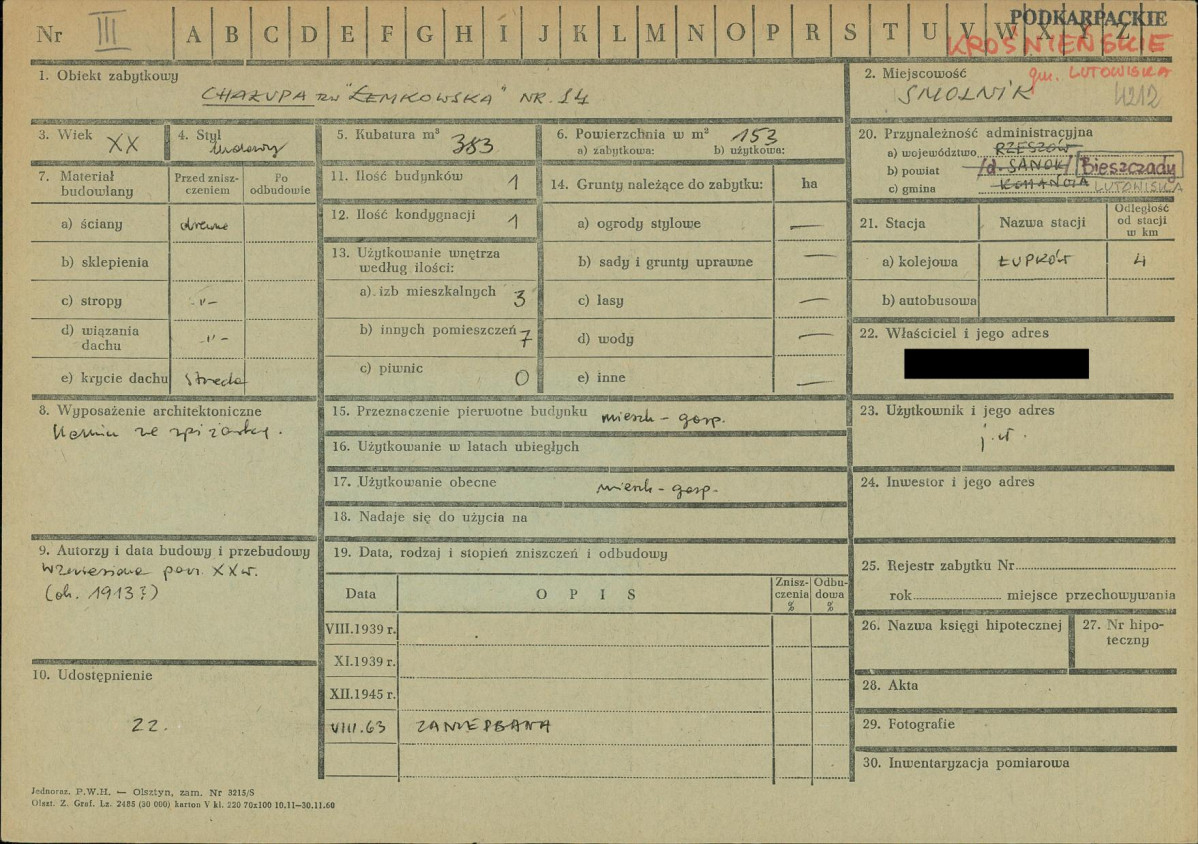 Nr III A B C D E F G H I J K L M N O P R S T U V W X Y Z
PODKARPACKIE
KROŚNIEŃSKIE
gm. LUTOWISKA
1. Obiekt zabytkowy
CHAŁUPA tzw "ŁEMKOWSKA" NR. 14
2. Miejscowość
SMOLNIK
4212
3. Wiek
XX
4. Styl
ludowy
5. Kubatura m³
383
6. Powierzchnia w m² 153
a) zabytkowa: b) użytkowa:
7. Materiał budowlany
Przed zniszczeniem
Po odbudowie
a) ściany drewno
b) sklepienia
c) stropy -"-
d) wiązania dachu -"-
e) krycie dachu strzecha
8. Wyposażenie architektoniczne
9. Autorzy i data budowy i przebudowy
wzniesiona pocz. XX w.
(ok. 1913?)
10. Udostępnienie
22.
11. Ilość budynków 1
12. Ilość kondygnacji 1
13. Użytkowanie wnętrza
według ilości:
a) izb mieszkalnych 3
b) innych pomieszczeń 7
c) piwnic 0
14. Grunty należące do zabytku: ha
a) ogrody stylowe —
b) sady i grunty uprawne —
c) lasy —
d) wody —
e) inne —
15. Przeznaczenie pierwotne budynku mieszk - gosp.
16. Użytkowanie w latach ubiegłych
17. Użytkowanie obecne mieszk - gosp.
18. Nadaje się do użycia na
19. Data, rodzaj i stopień zniszczeń i odbudowy
Data OPIS Zniszczenia % Odbudowa %
VIII.1939 r.
XI.1939 r.
XII.1945 r.
VIII.63 ZANIEDBANA
20. Przynależność administracyjna
a) województwo RZESZÓW
b) powiat /d. SANOK/ Bieszczady
c) gmina KOMAŃCZA LUTOWISKA
21. Stacja Nazwa stacji Odległość od stacji w km
a) kolejowa ŁUPKÓW 4
b) autobusowa
22. Właściciel i jego adres
23. Użytkownik i jego adres
j. w.
24. Inwestor i jego adres
25. Rejestr zabytku Nr
rok miejsce przechowywania
26. Nazwa księgi hipotecznej
27. Nr hipoteczny
28. Akta
29. Fotografie
30. Inwentaryzacja pomiarowa
Jednoraz. P.W.H. — Olsztyn, zam. Nr 3215/S
Olszt. Z. Graf. Lz. 2485 (30 000) karton V kl. 220 70x100 10.11—30.11.60